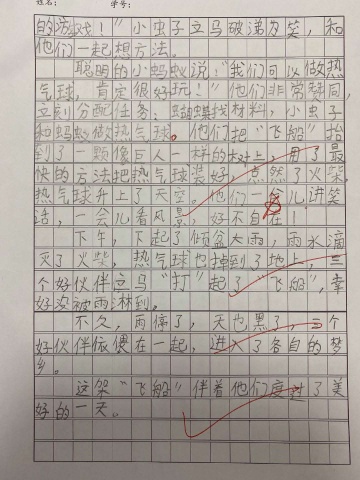 姓名： 学号：
的游戏！”小虫子立马破涕为笑，和
他们一起想方法。
聪明的小蚂蚁说：“我们可以做热
气球，肯定很好玩！”他们非常赞同，
立刻分配任务：蝴蝶找材料，小虫子
和蚂蚁做热气球。他们把“飞船”抬
到了一颗像巨人一样的树上，用了最
快的方法把热气球装好，点燃了火柴，
热气球升上了天空。他们一会儿讲笑
话，一会儿看风景，好不自在！
下午，下起了倾盆大雨，雨水滴
灭了火柴，热气球也掉到了地上，三
个好伙伴立马“打”起了“飞船”，幸
好没被雨淋到。
不久，雨停了，天也黑了，三个
好伙伴依偎在一起，进入了各自的梦
乡。
这架“飞船”伴着他们度过了美
好的一天。